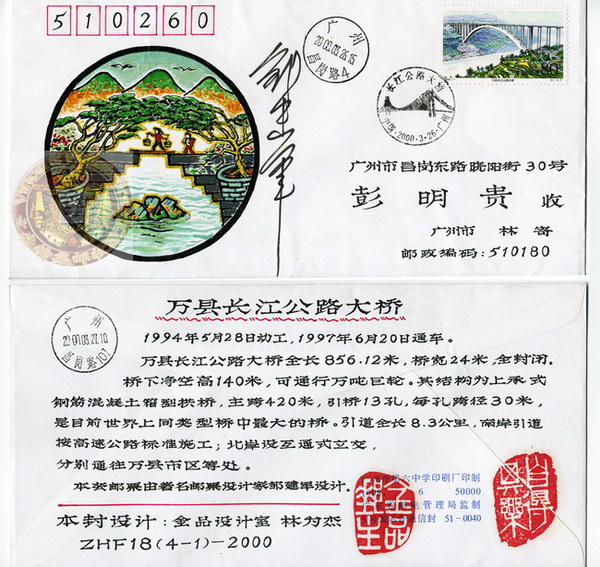 510260
广州
2000.03.26.15
昌岗路4
长江公路大桥
中国·2000·3·26·广州
广州市昌岗东路晓阳街30号
彭明贵 收
广州市 林寄
邮政编码:510180
万县长江公路大桥
广州
2000.03.27.10
昌岗路107
1994年5月28日动工,1997年6月20日通车。
万县长江公路大桥全长856.12米,桥宽24米,全封闭。
桥下净空高140米,可通行万吨巨轮。其结构为上承式
钢筋混凝土箱型拱桥,主跨420米,引桥13孔,每孔跨径30米,
是目前世界上同类型桥中最大的桥。引道全长8.3公里,南岸引道
按高速公路标准施工;北岸设互通式立交,
分别通往万县市区等处。
本套邮票由著名邮票设计家邹建军设计。
第六中学印刷厂印制
6 50000
电管理局监制
信封 51-0040
本封设计:金品设计室 林为杰
ZHF18(4-1)-2000
自得其乐